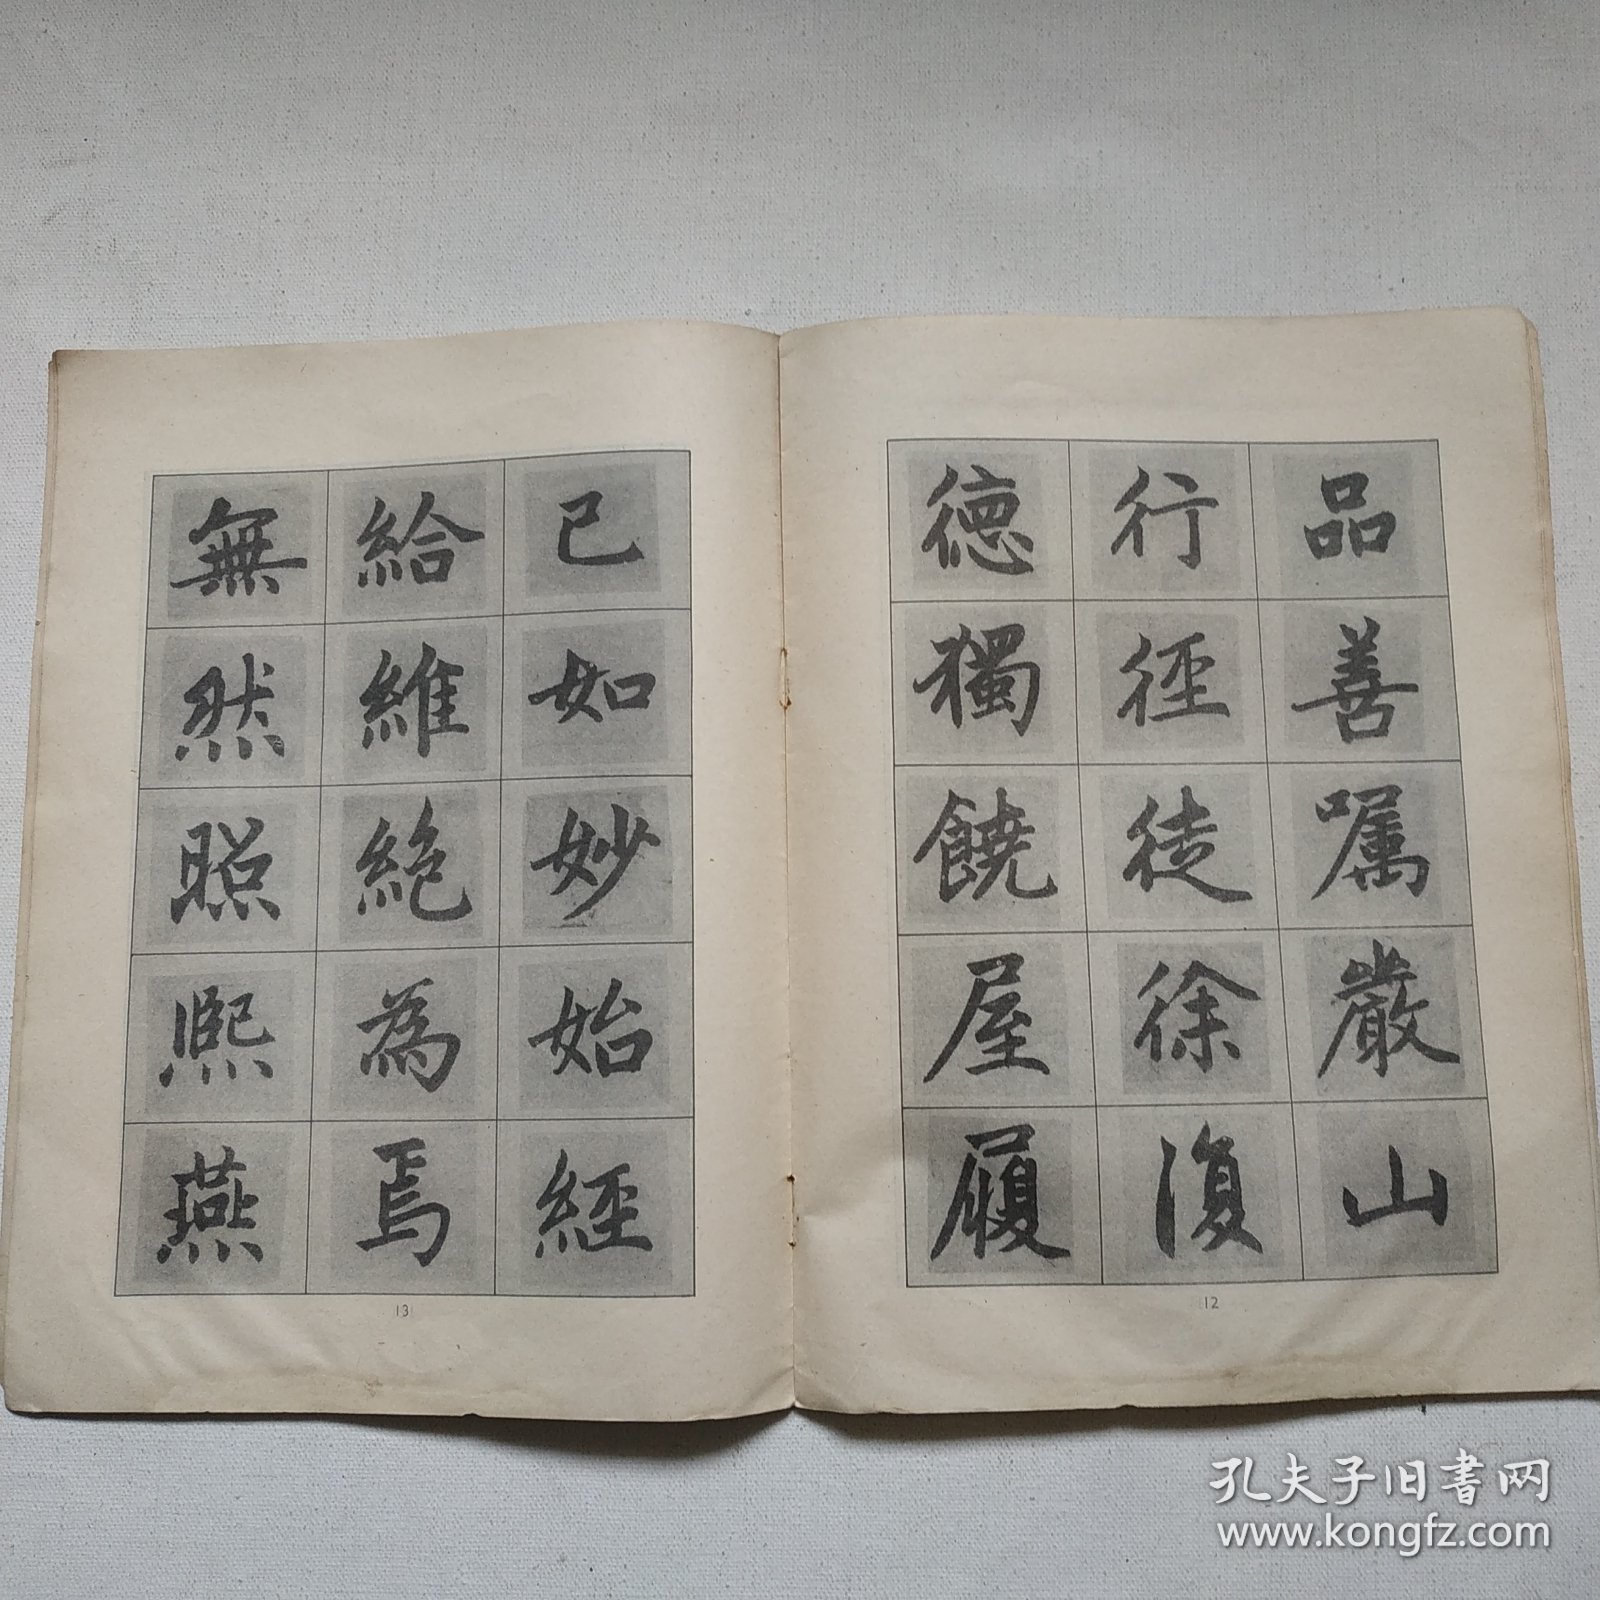 品善嘱嚴山
行徑徒徐復
德獨饒屋履
12
已如妙始經
給維絕為焉
無然照熙燕
13
孔夫子旧书网
www.kongfz.com